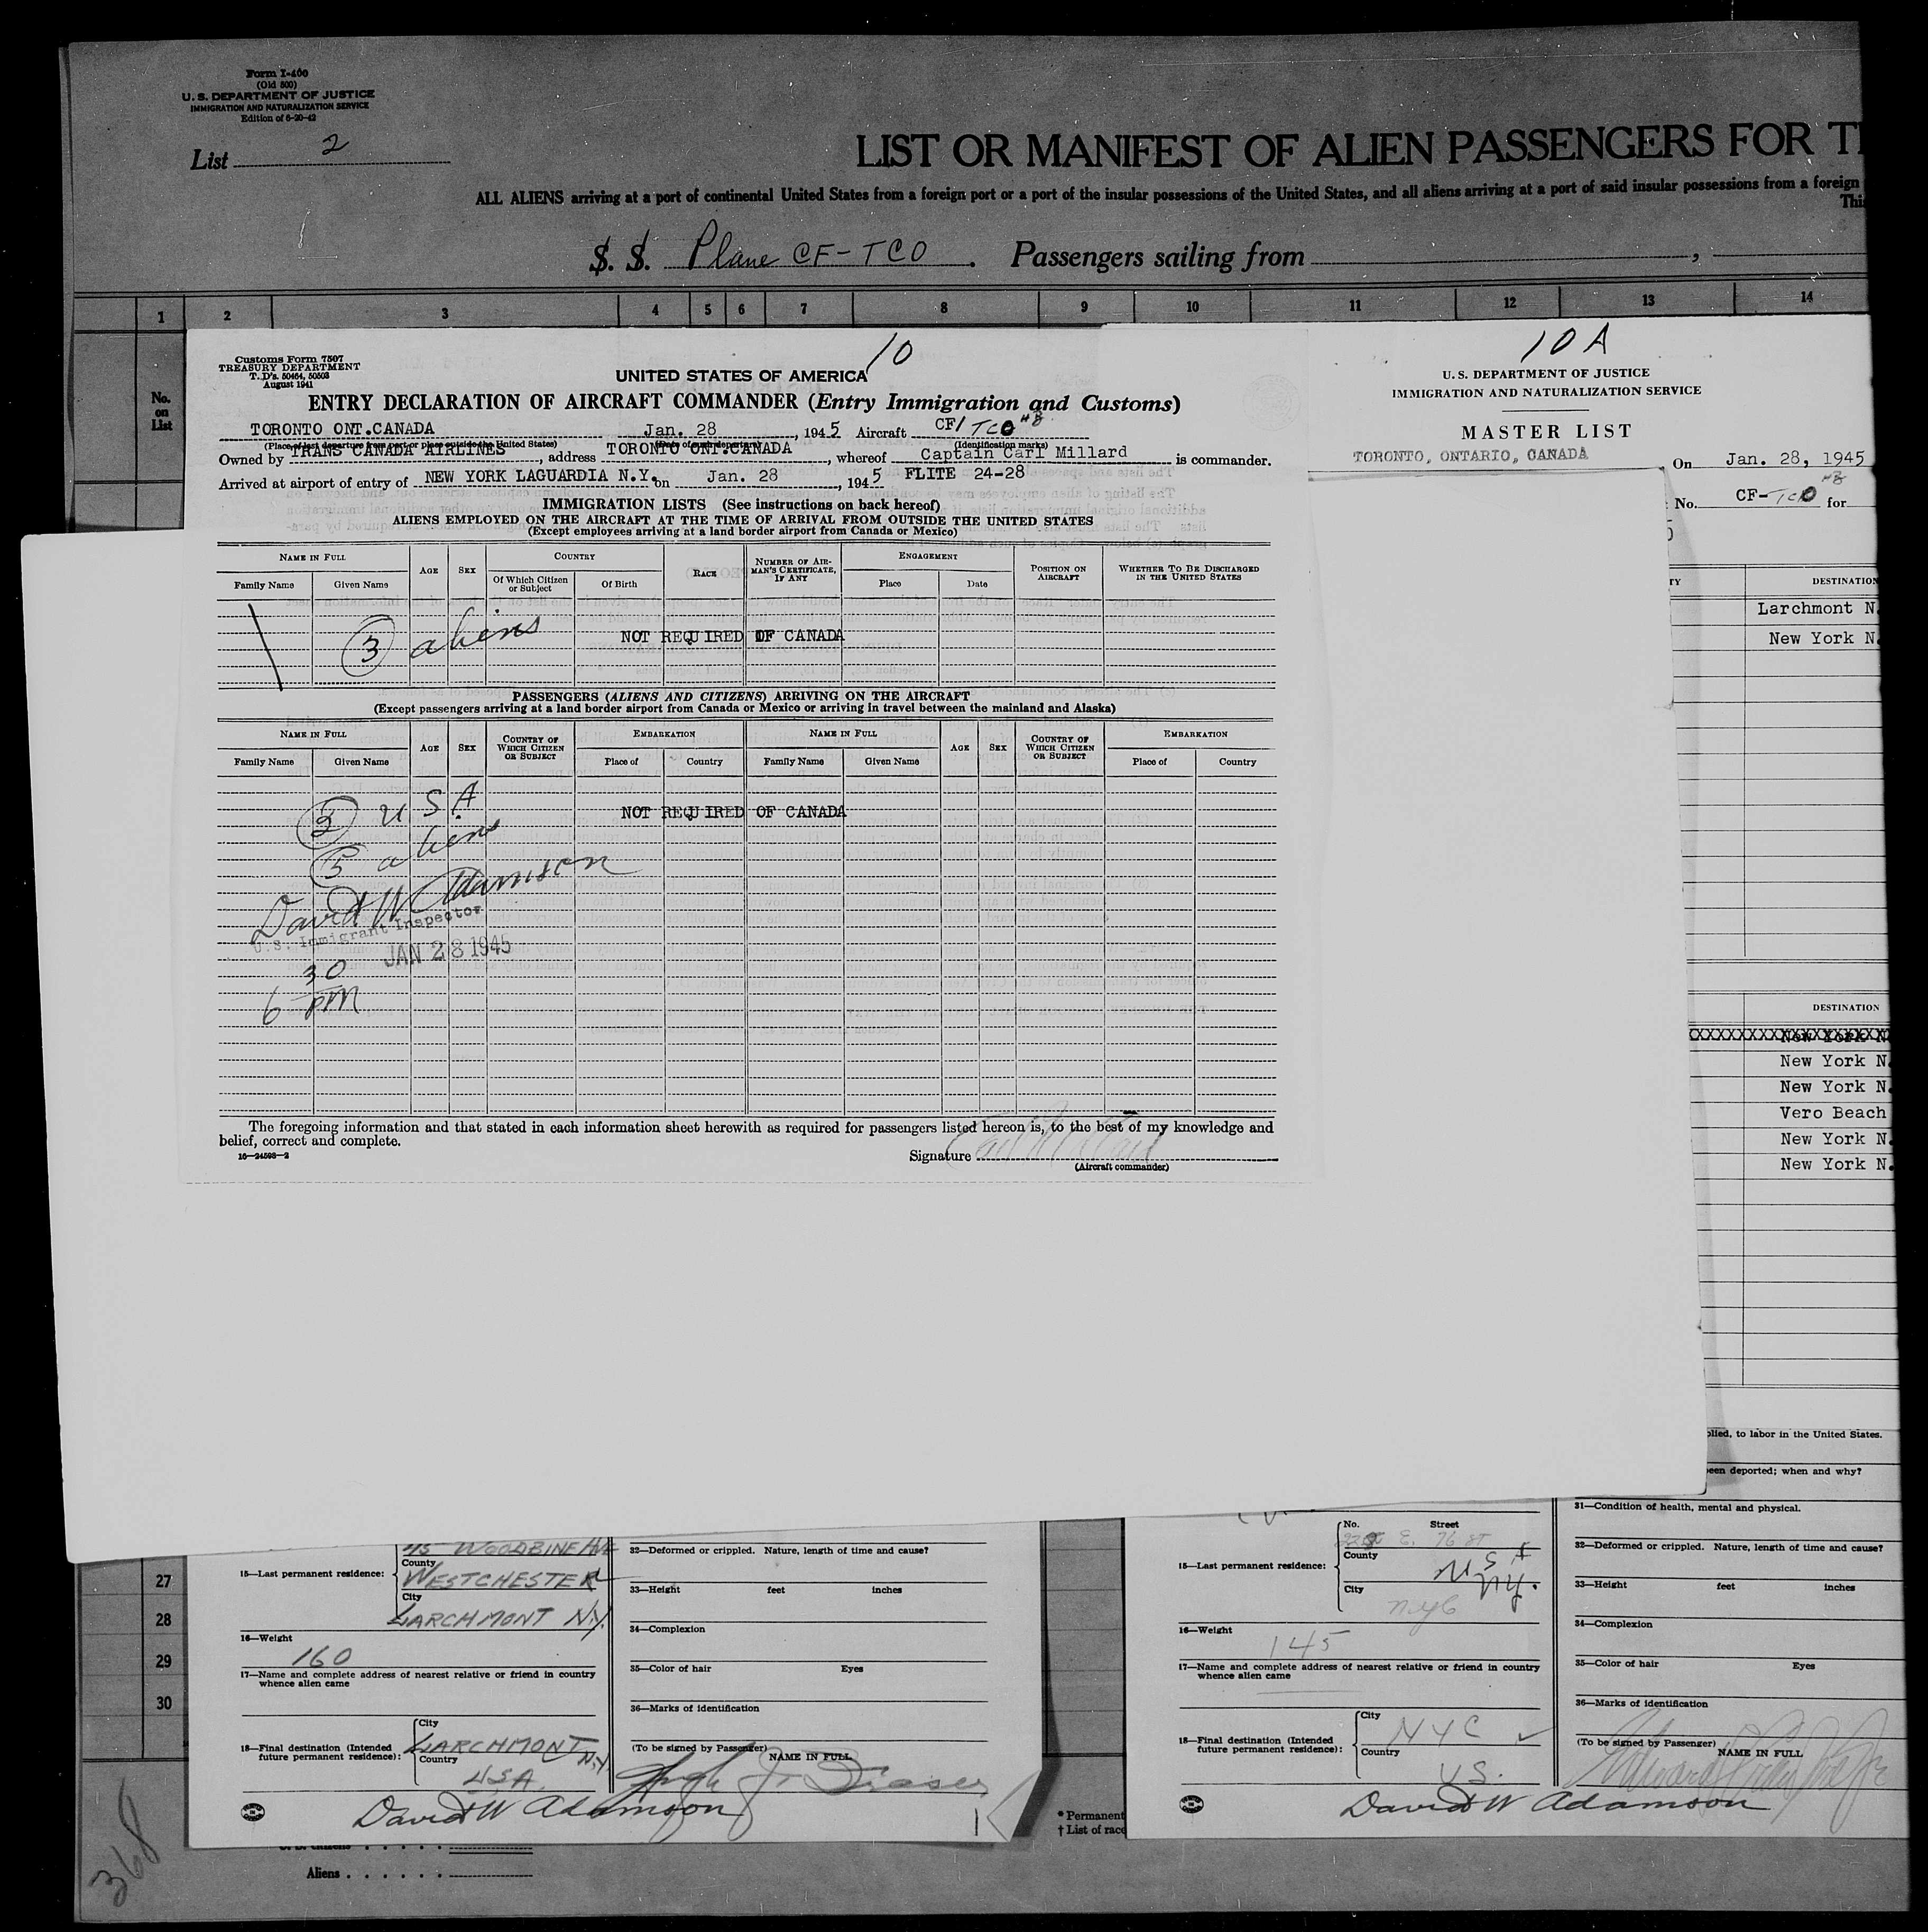 Form I-400
(Old 500)
U. S. DEPARTMENT OF JUSTICE
IMMIGRATION AND NATURALIZATION SERVICE
Edition of 6-20-42
List 2
LIST OR MANIFEST OF ALIEN PASSENGERS FOR T
ALL ALIENS arriving at a port of continental United States from a foreign port or a port of the insular possessions of the United States, and all aliens arriving at a port of said insular possessions from a foreign
This
S. S. Plane CF-TCO. Passengers sailing from ,
1 2 3 4 5 6 7 8 9 10 11 12 13 14
No. on List
10
Customs Form 7507
TREASURY DEPARTMENT
T. D's. 50464, 50503
August 1941
UNITED STATES OF AMERICA
ENTRY DECLARATION OF AIRCRAFT COMMANDER (Entry Immigration and Customs)
TORONTO ONT.CANADA Jan. 28, 1945 Aircraft CF/TCO HB
(Place of last departure from port or place outside the United States) (Date of such departure) (Identification marks)
Owned by TRANS CANADA AIRLINES, address TORONTO ONT.CANADA, whereof Captain Carl Millard is commander.
Arrived at airport of entry of NEW YORK LAGUARDIA N.Y. on Jan. 28, 1945 FLITE 24-28
IMMIGRATION LISTS (See instructions on back hereof)
ALIENS EMPLOYED ON THE AIRCRAFT AT THE TIME OF ARRIVAL FROM OUTSIDE THE UNITED STATES
(Except employees arriving at a land border airport from Canada or Mexico)
NAME IN FULL AGE SEX COUNTRY RACE NUMBER OF AIRMAN'S CERTIFICATE, IF ANY ENGAGEMENT POSITION ON AIRCRAFT WHETHER TO BE DISCHARGED IN THE UNITED STATES
Family Name Given Name Of Which Citizen or Subject Of Birth Place Date
3 aliens NOT REQUIRED OF CANADA
PASSENGERS (ALIENS AND CITIZENS) ARRIVING ON THE AIRCRAFT
(Except passengers arriving at a land border airport from Canada or Mexico or arriving in travel between the mainland and Alaska)
NAME IN FULL AGE SEX COUNTRY OF WHICH CITIZEN OR SUBJECT EMBARKATION NAME IN FULL AGE SEX COUNTRY OF WHICH CITIZEN OR SUBJECT EMBARKATION
Family Name Given Name Place of Country Family Name Given Name Place of Country
USA NOT REQUIRED OF CANADA
5 aliens
David W Adamson
U.S. Immigrant Inspector
JAN 28 1945
6 30 PM
The foregoing information and that stated in each information sheet herewith as required for passengers listed hereon is, to the best of my knowledge and
belief, correct and complete.
16—24598-2
Signature
(Aircraft commander)
10 A
U. S. DEPARTMENT OF JUSTICE
IMMIGRATION AND NATURALIZATION SERVICE
MASTER LIST
TORONTO, ONTARIO, CANADA On Jan. 28, 1945
No. CF-TCO HB for
TY DESTINATION
Larchmont N.
New York N.
DESTINATION
XXXXXXXXXXXX New York N
New York N.
New York N.
Vero Beach
New York N.
New York N.
plied, to labor in the United States.
een deported; when and why?
31—Condition of health, mental and physical.
27
28
29
30
15—Last permanent residence:
WOODBINE AVE
County
WESTCHESTER
City
LARCHMONT N.Y.
16—Weight
160
17—Name and complete address of nearest relative or friend in country
whence alien came
18—Final destination (Intended
future permanent residence):
City
LARCHMONT N.Y.
Country
USA
David W Adamson
32—Deformed or crippled. Nature, length of time and cause?
33—Height feet inches
34—Complexion
35—Color of hair Eyes
36—Marks of identification
(To be signed by Passenger)
NAME IN FULL
* Permanent
† List of race
15—Last permanent residence:
No. Street
E. 76 St
County
USA
N.Y.
City
NYC
16—Weight
145
17—Name and complete address of nearest relative or friend in country
whence alien came
18—Final destination (Intended
future permanent residence):
City
NYC
Country
US.
David W Adamson
32—Deformed or crippled. Nature, length of time and cause?
33—Height feet inches
34—Complexion
35—Color of hair Eyes
36—Marks of identification
(To be signed by Passenger)
NAME IN FULL
Aliens
368